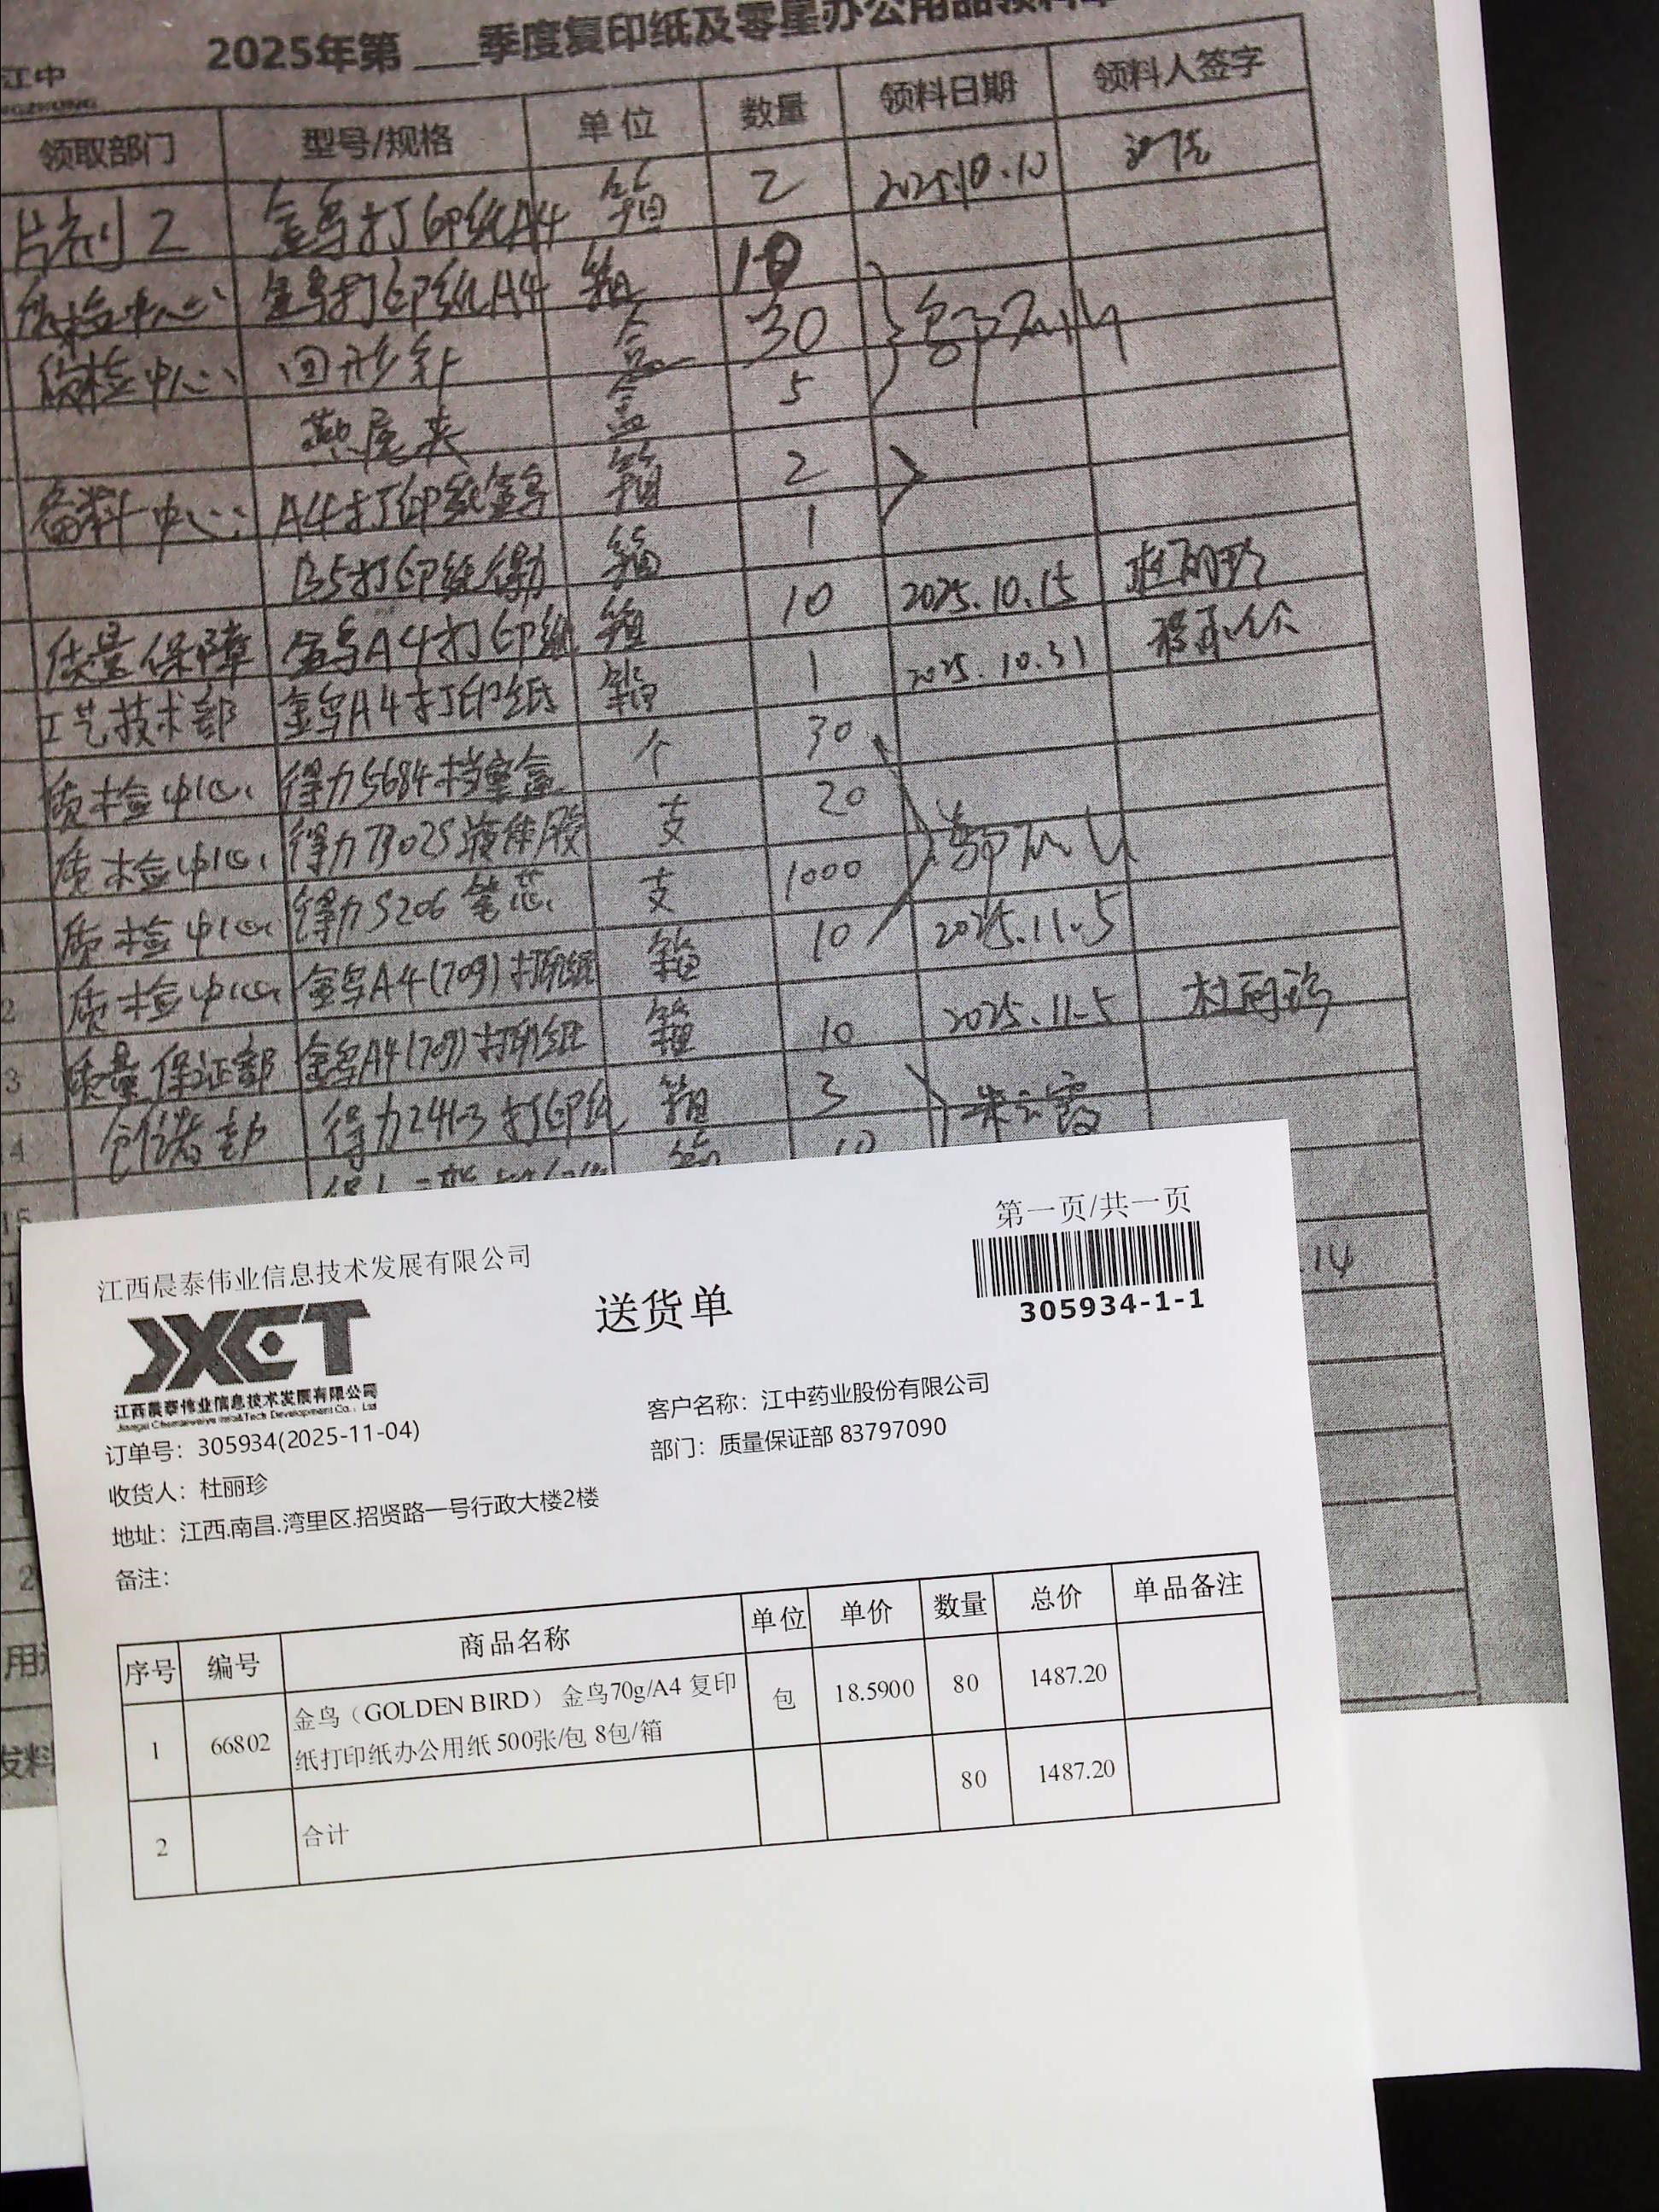 2025年第___季度复印纸及零星办公用品领料单
江中
领取部门 型号/规格 单位 数量 领料日期 领料人签字
片剂2 金鸟打印纸A4 箱 2 2025.10.10
质检中心 金鸟打印纸A4 箱 10
质检中心 回形针 盒 30
燕尾夹 盒 5
备料中心 A4打印纸金鸟 箱 2
B5打印纸得力 箱 1
质量保障 金鸟A4打印纸 箱 10 2025.10.15 杜丽珍
工艺技术部 金鸟A4打印纸 箱 1 2025.10.31
质检中心 得力5684档案盒 个 30
质检中心 得力7302S液体胶 支 20
质检中心 得力S206笔芯 支 1000
2 质检中心 金鸟A4(70g)打印纸 箱 10 2025.11.5
3 质量保证部 金鸟A4(70g)打印纸 箱 10 2025.11.5 杜丽珍
14 仓储部 得力241-3打印纸 箱 3 朱云霞
15 箱 10
.14
第一页/共一页
江西晨泰伟业信息技术发展有限公司
送货单
305934-1-1
JXCT
江西晨泰伟业信息技术发展有限公司
客户名称：江中药业股份有限公司
订单号：305934(2025-11-04)
部门：质量保证部 83797090
收货人：杜丽珍
地址：江西.南昌.湾里区.招贤路一号行政大楼2楼
备注：
序号 编号 商品名称 单位 单价 数量 总价 单品备注
1 66802 金鸟（GOLDEN BIRD） 金鸟70g/A4 复印 包 18.5900 80 1487.20
纸打印纸办公用纸 500张/包 8包/箱
2 合计 80 1487.20